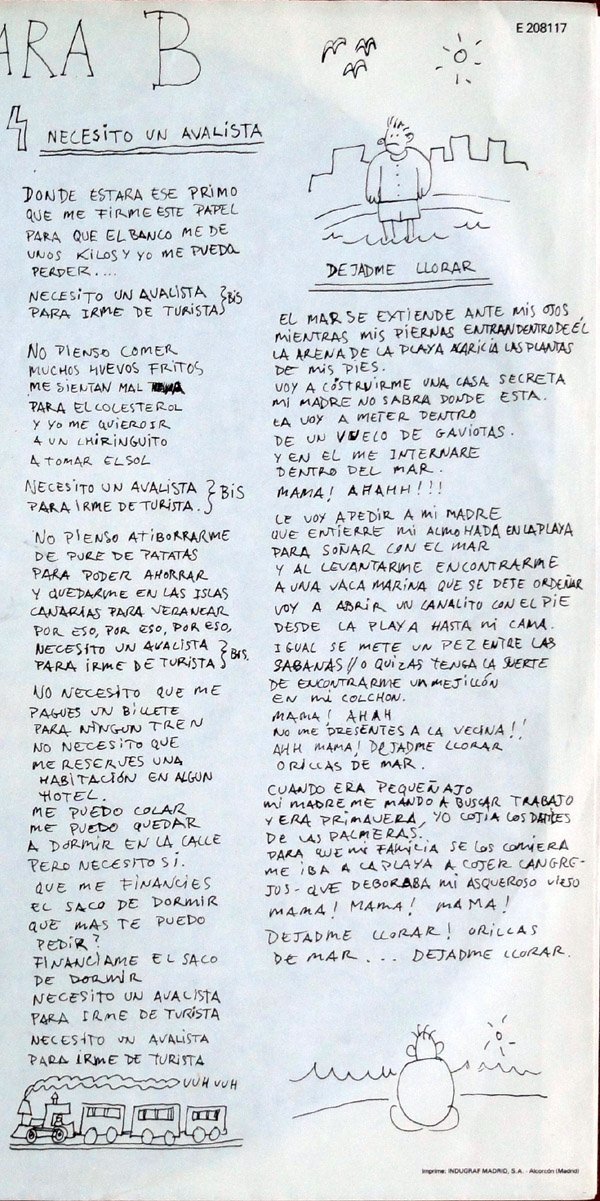 ARA B
E 208117
4 NECESITO UN AVALISTA
DONDE ESTARA ESE PRIMO
QUE ME FIRME ESTE PAPEL
PARA QUE EL BANCO ME DE
UNOS KILOS Y YO ME PUEDA
PERDER....
NECESITO UN AVALISTA } BIS
PARA IRME DE TURISTA
NO PIENSO COMER
MUCHOS HUEVOS FRITOS
ME SIENTAN MAL
PARA EL COLESTEROL
Y YO ME QUIERO IR
A UN CHIRINGUITO
A TOMAR EL SOL
NECESITO UN AVALISTA } BIS
PARA IRME DE TURISTA.
NO PIENSO ATIBORRARME
DE PURE DE PATATAS
PARA PODER AHORRAR
Y QUEDARME EN LAS ISLAS
CANARIAS PARA VERANEAR
POR ESO, POR ESO, POR ESO,
NECESITO UN AVALISTA } BIS.
PARA IRME DE TURISTA
NO NECESITO QUE ME
PAGUES UN BILLETE
PARA NINGUN TREN
NO NECESITO QUE
ME RESERVES UNA
HABITACIÓN EN ALGUN
HOTEL.
ME PUEDO COLAR
ME PUEDO QUEDAR
A DORMIR EN LA CALLE
PERO NECESITO SI.
QUE ME FINANCIES
EL SACO DE DORMIR
QUE MAS TE PUEDO
PEDIR?
FINANCIAME EL SACO
DE DORMIR
NECESITO UN AVALISTA
PARA IRME DE TURISTA
NECESITO UN AVALISTA
PARA IRME DE TURISTA
UUH UUH
DEJADME LLORAR
EL MAR SE EXTIENDE ANTE MIS OJOS
MIENTRAS MIS PIERNAS ENTRAN DENTRO DE ÉL
LA ARENA DE LA PLAYA ACARICIA LAS PLANTAS
DE MIS PIES.
VOY A COSTRUIRME UNA CASA SECRETA
MI MADRE NO SABRA DONDE ESTA.
LA VOY A METER DENTRO
DE UN VUELO DE GAVIOTAS.
Y EN EL ME INTERNARE
DENTRO DEL MAR.
MAMA! AHAHH!!!
LE VOY A PEDIR A MI MADRE
QUE ENTIERRE MI ALMOHADA EN LA PLAYA
PARA SOÑAR CON EL MAR
Y AL LEVANTARME ENCONTRARME
A UNA VACA MARINA QUE SE DEJE ORDEÑAR
VOY A ABRIR UN CANALITO CON EL PIE
DESDE LA PLAYA HASTA MI CAMA.
IGUAL SE METE UN PEZ ENTRE LAS
SABANAS // O QUIZAS TENGA LA SUERTE
DE ENCONTRARME UN MEJILLÓN
EN MI COLCHON.
MAMA! AHAH
NO ME PRESENTES A LA VECINA!!
AHH MAMA! DEJADME LLORAR
ORILLAS DE MAR.
CUANDO ERA PEQUEÑAJO
MI MADRE ME MANDO A BUSCAR TRABAJO
Y ERA PRIMAVERA, YO COJIA LOS DATILES
DE LAS PALMERAS.
PARA QUE MI FAMILIA SE LOS COMIERA
ME IBA A LA PLAYA A COJER CANGRE-
JOS - QUE DEBORABA MI ASQUEROSO VIEJO
MAMA! MAMA! MAMA!
DEJADME LLORAR! ORILLAS
DE MAR... DEJADME LLORAR.
Imprime: INDUGRAF MADRID, S.A. - Alcorcón (Madrid)